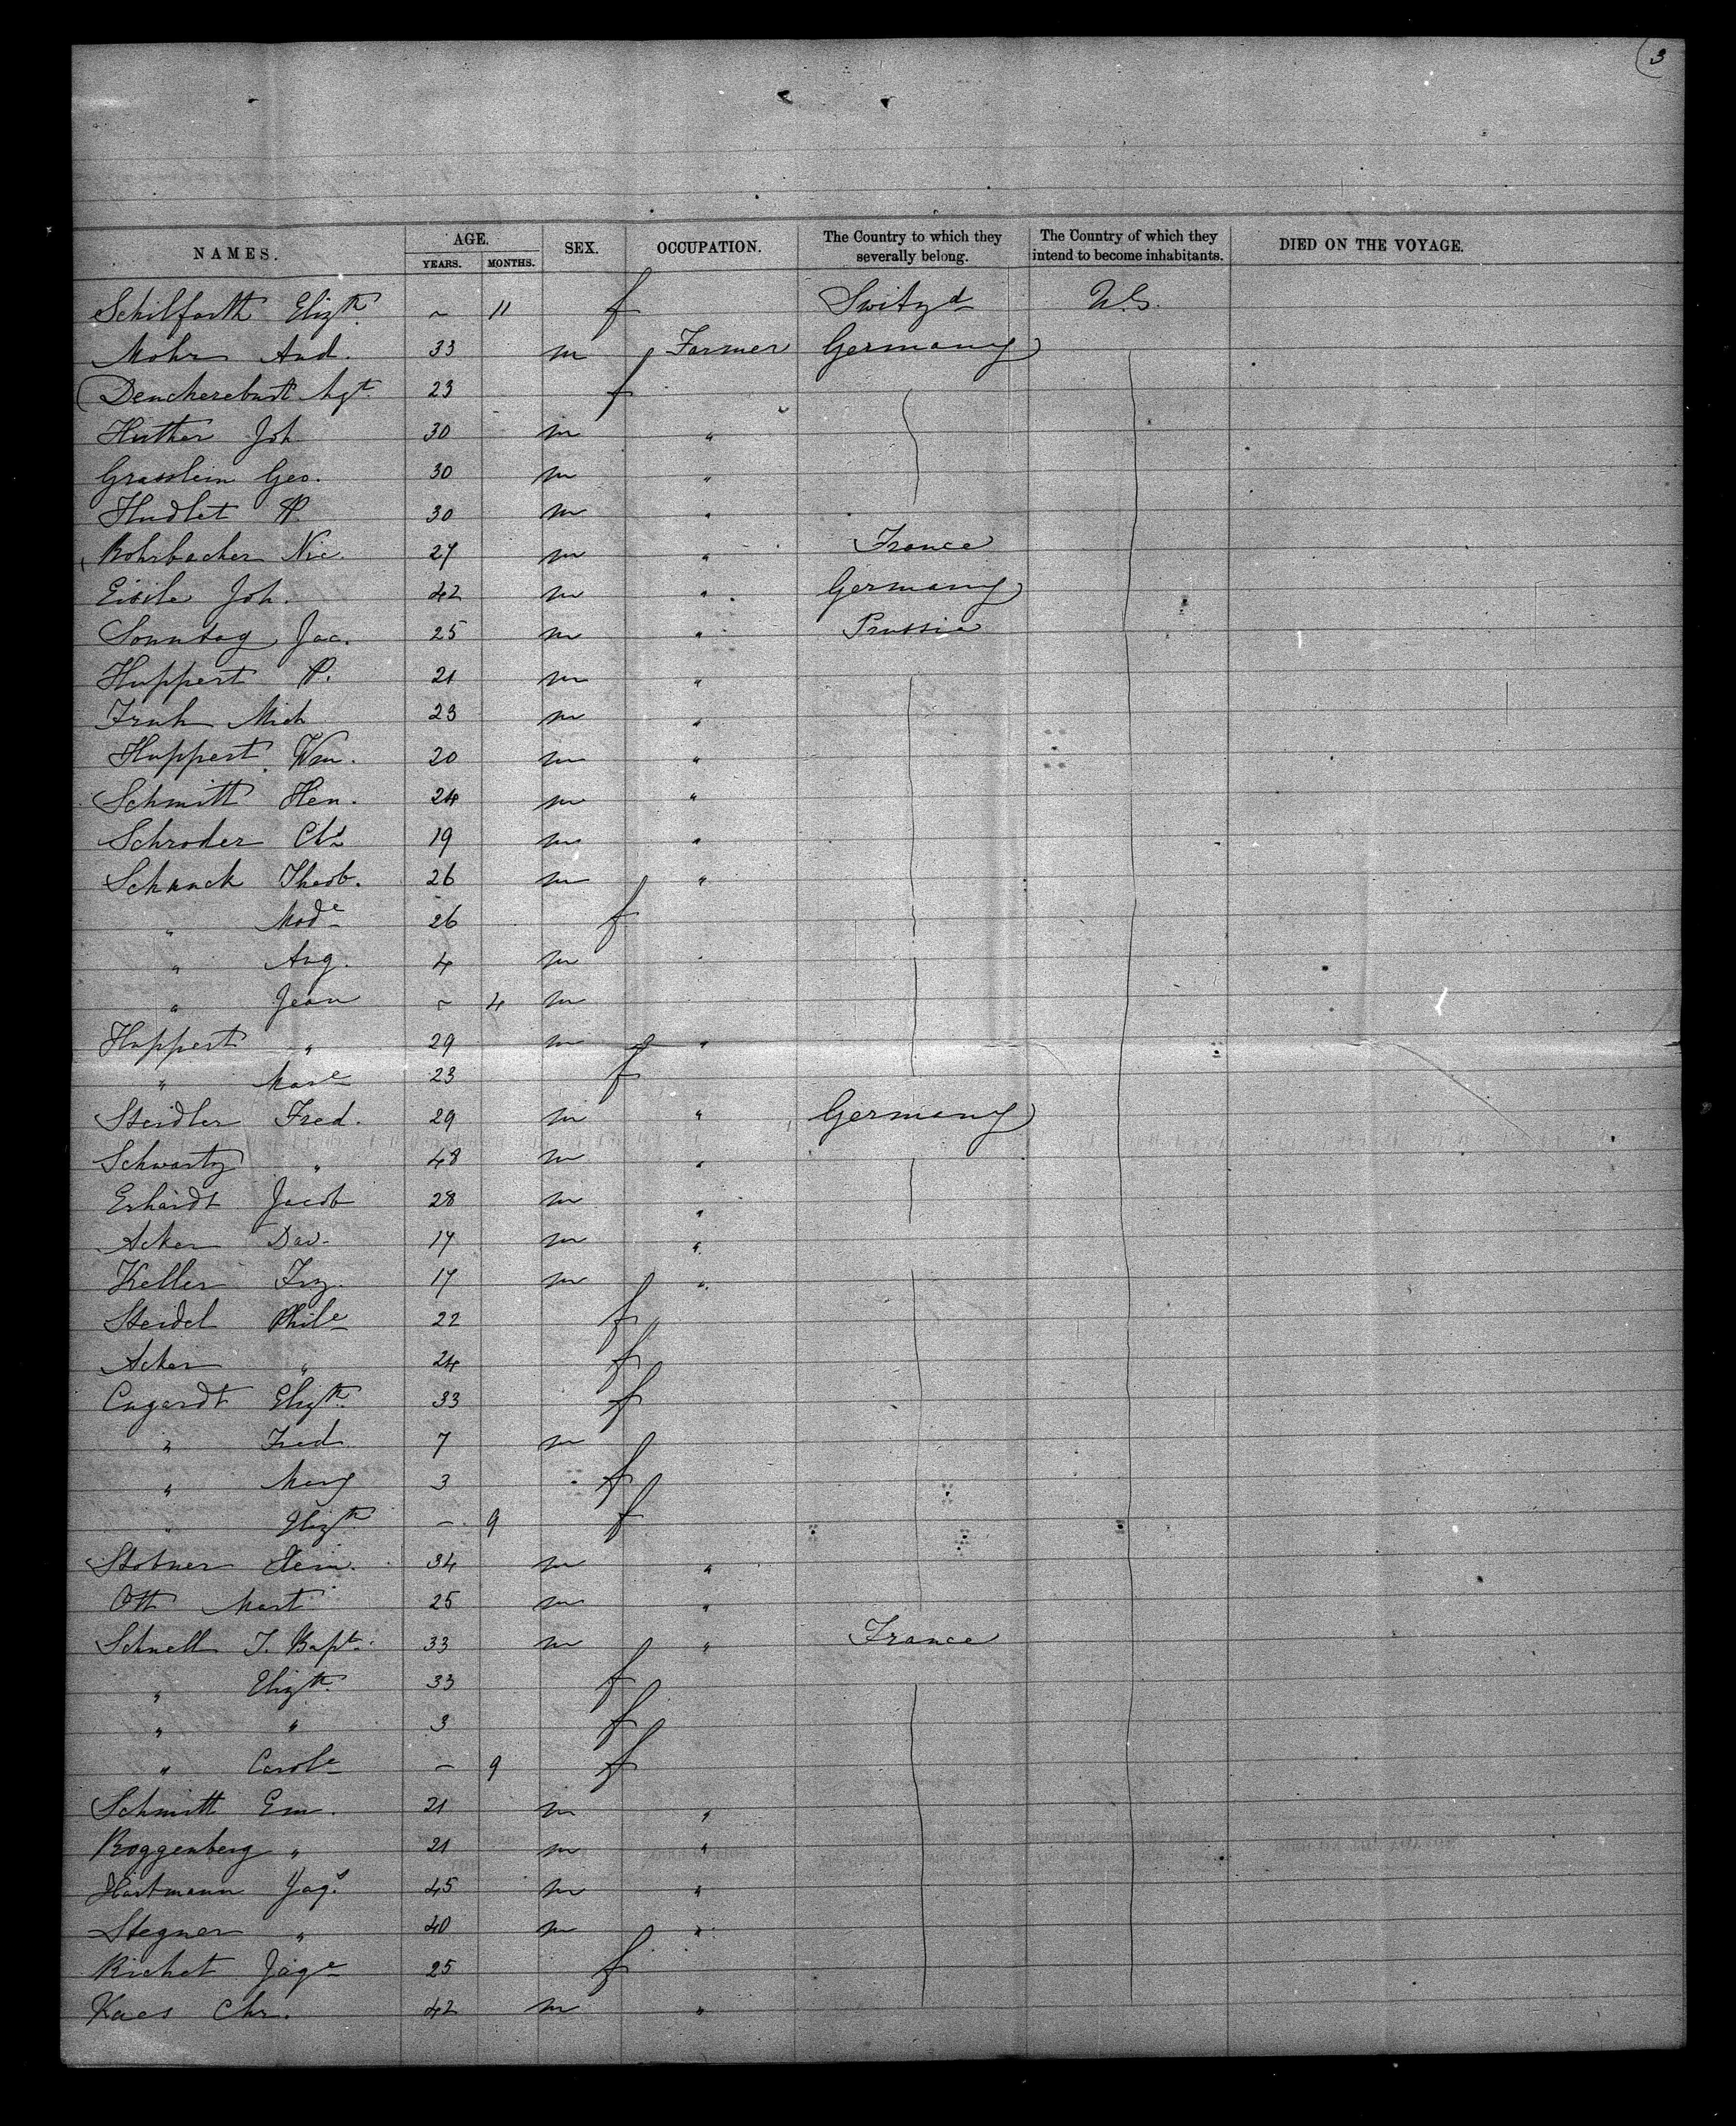 3
NAMES. AGE. YEARS. MONTHS. SEX. OCCUPATION. The Country to which they severally belong. The Country of which they intend to become inhabitants. DIED ON THE VOYAGE.
Schilfarth Elizth. ~ 11 f Switzd U.S.
Mohr And. 33 m Farmer Germany
Agt. 23 f
Huther Joh 30 m "
Grasslein Geo. 30 m "
Hudlet P. 30 m "
Rohrbacher Nic. 27 m " France
Eisile Joh. 42 m " Germany
Sonntag Jac. 25 m " Prussia
Huppert P. 21 m "
Fruh Mich 23 m "
Huppert Wm. 20 m "
Schmitt Hen. 24 m "
Schroder Chs 19 m "
Schunck Theob. 26 m "
" Made 26 f
" Aug. 4 m
" Jean ~ 4 m
Huppert " 29 m "
" Mare 23 f
Steidler Fred. 29 m " Germany
Schwartz " 48 m "
Erhardt Jacob 28 m "
Acker Dav. 17 m "
Keller Frz. 17 m "
Steidel Phile 22 f
Acker " 24 f
Engardt Elizth. 33 f
" Fred 7 m
" Mary 3 f
" Elizth - 9 f
Stobner Hein. 34 m "
Ott Mart 25 m "
Schnell J. Bapt. 33 m " France
" Elizth. 33 f
" " 3 f
" Carole - 9 f
Schmitt Em. 21 m "
Roggenberg " 21 m "
Hartmann Jaqs 45 m "
Stegner " 40 m "
Richet Jaqe 25 f
Kaes Chr. 42 m "